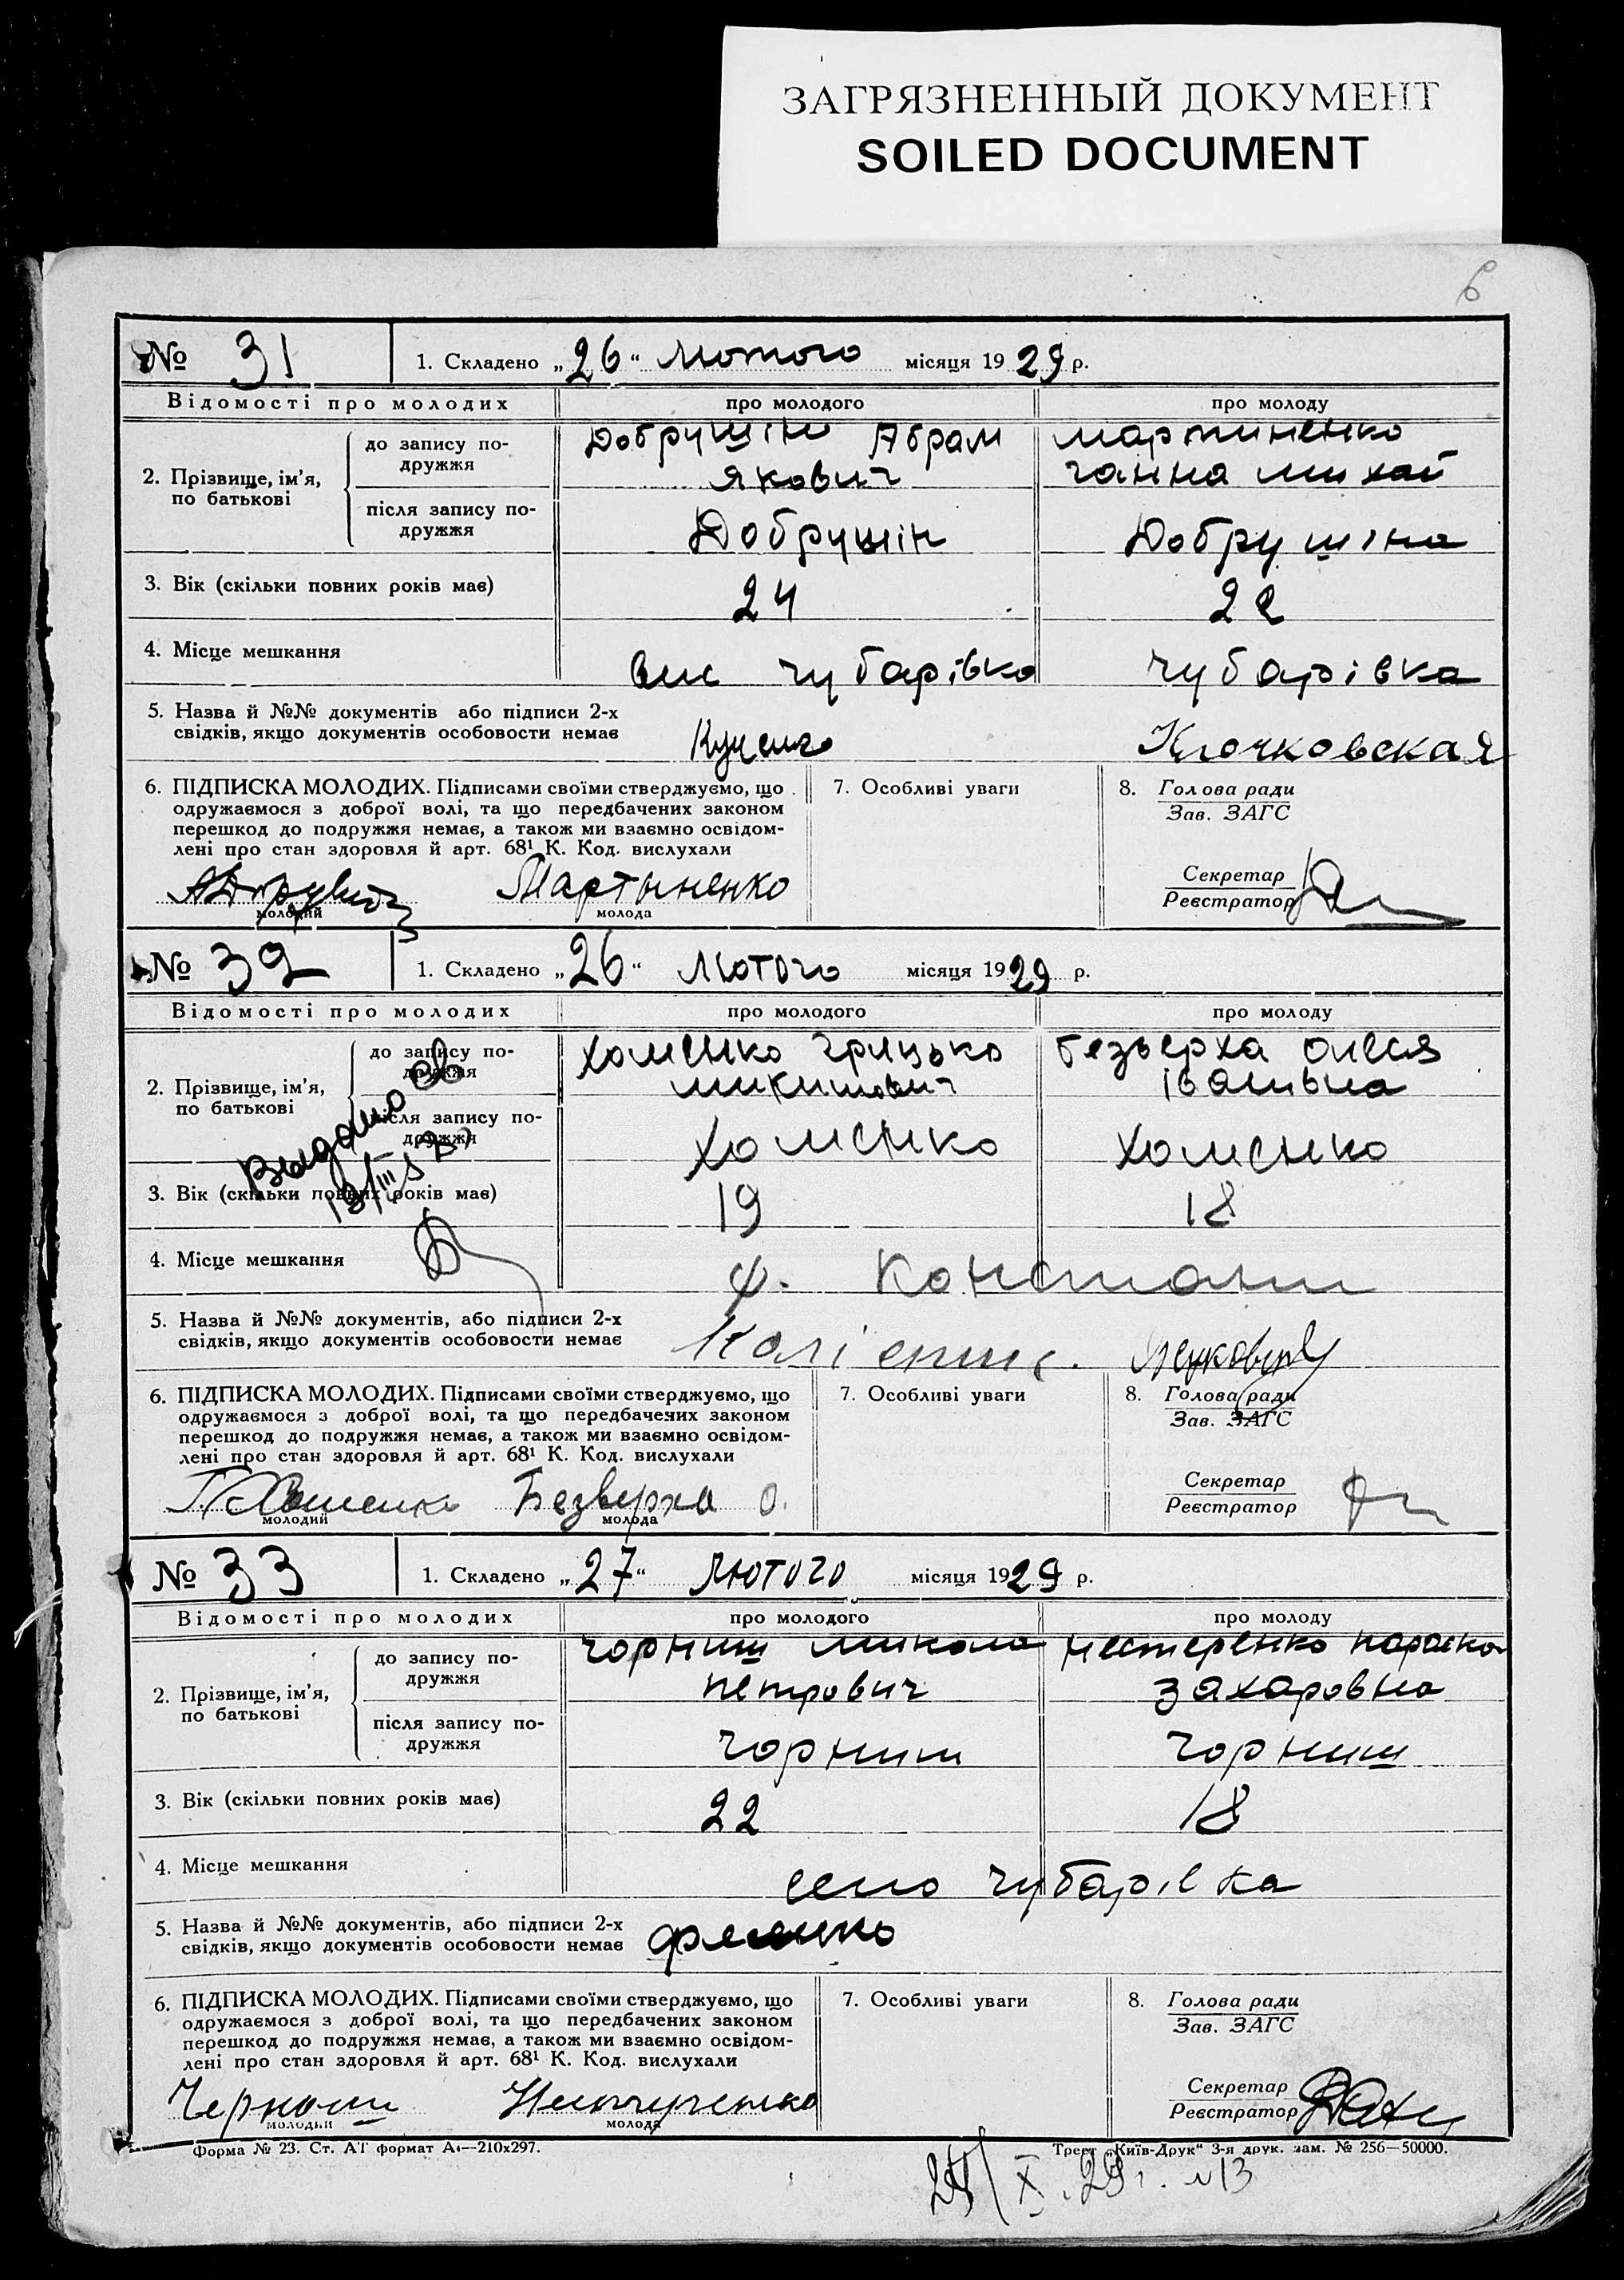 ЗАГРЯЗНЕННЫЙ ДОКУМЕНТ
SOILED DOCUMENT
6
№ 31 1. Складено „26“ Лютого місяця 1929 р.
Відомості про молодих про молодого про молоду
2. Прізвище, ім’я, по батькові
до запису подружжя
Добрушін Абрам Мартиненко
Якович Ганна Михай
після запису по-
дружжя
Добрушін Добрушіна
3. Вік (скільки повних років має) 24 22
4. Місце мешкання Чубарівка Чубарівка
5. Назва й №№ документів або підписи 2-х
свідків, якщо документів особовости немає Клочковская
6. ПІДПИСКА МОЛОДИХ. Підписами своїми стверджуємо, що
одружаємося з доброї волі, та що передбачених законом
перешкод до подружжя немає, а також ми взаємно освідом-
лені про стан здоровля й арт. 68¹ К. Код. вислухали
Мартыненко
молодий молода
7. Особливі уваги
8. Голова ради
Зав. ЗАГС
Секретар
Реєстратор
№ 32 1. Складено „26“ Лютого місяця 1929 р.
Відомості про молодих про молодого про молоду
2. Прізвище, ім’я,
по батькові
до запису по-
дружжя
Хоменко Грицько Безверха Олеся
Микитович Іванівна
після запису по-
дружжя
Хоменко Хоменко
Выдано
3. Вік (скільки повних років має) 19 18
4. Місце мешкання
5. Назва й №№ документів, або підписи 2-х
свідків, якщо документів особовости немає
6. ПІДПИСКА МОЛОДИХ. Підписами своїми стверджуємо, що
одружаємося з доброї волі, та що передбачених законом
перешкод до подружжя немає, а також ми взаємно освідом-
лені про стан здоровля й арт. 68¹ К. Код. вислухали
Безверха О.
молодий молода
7. Особливі уваги
8. Голова ради
Зав. ЗАГС
Секретар
Реєстратор
№ 33 1. Складено „27“ Лютого місяця 1929 р.
Відомості про молодих про молодого про молоду
2. Прізвище, ім’я,
по батькові
до запису по-
дружжя
Чорниш Микола Нестеренко Параска
Петрович Захаровна
після запису по-
дружжя
Чорниш Чорниш
3. Вік (скільки повних років має) 22 18
4. Місце мешкання село Чубарівка
5. Назва й №№ документів, або підписи 2-х
свідків, якщо документів особовости немає
6. ПІДПИСКА МОЛОДИХ. Підписами своїми стверджуємо, що
одружаємося з доброї волі, та що передбачених законом
перешкод до подружжя немає, а також ми взаємно освідом-
лені про стан здоровля й арт. 68¹ К. Код. вислухали
молодий молода
7. Особливі уваги
8. Голова ради
Зав. ЗАГС
Секретар
Реєстратор
Форма № 23. Ст. АТ формат А4—210х297. Трест „Київ-Друк“ 3-я друк. зам. № 256—50000.